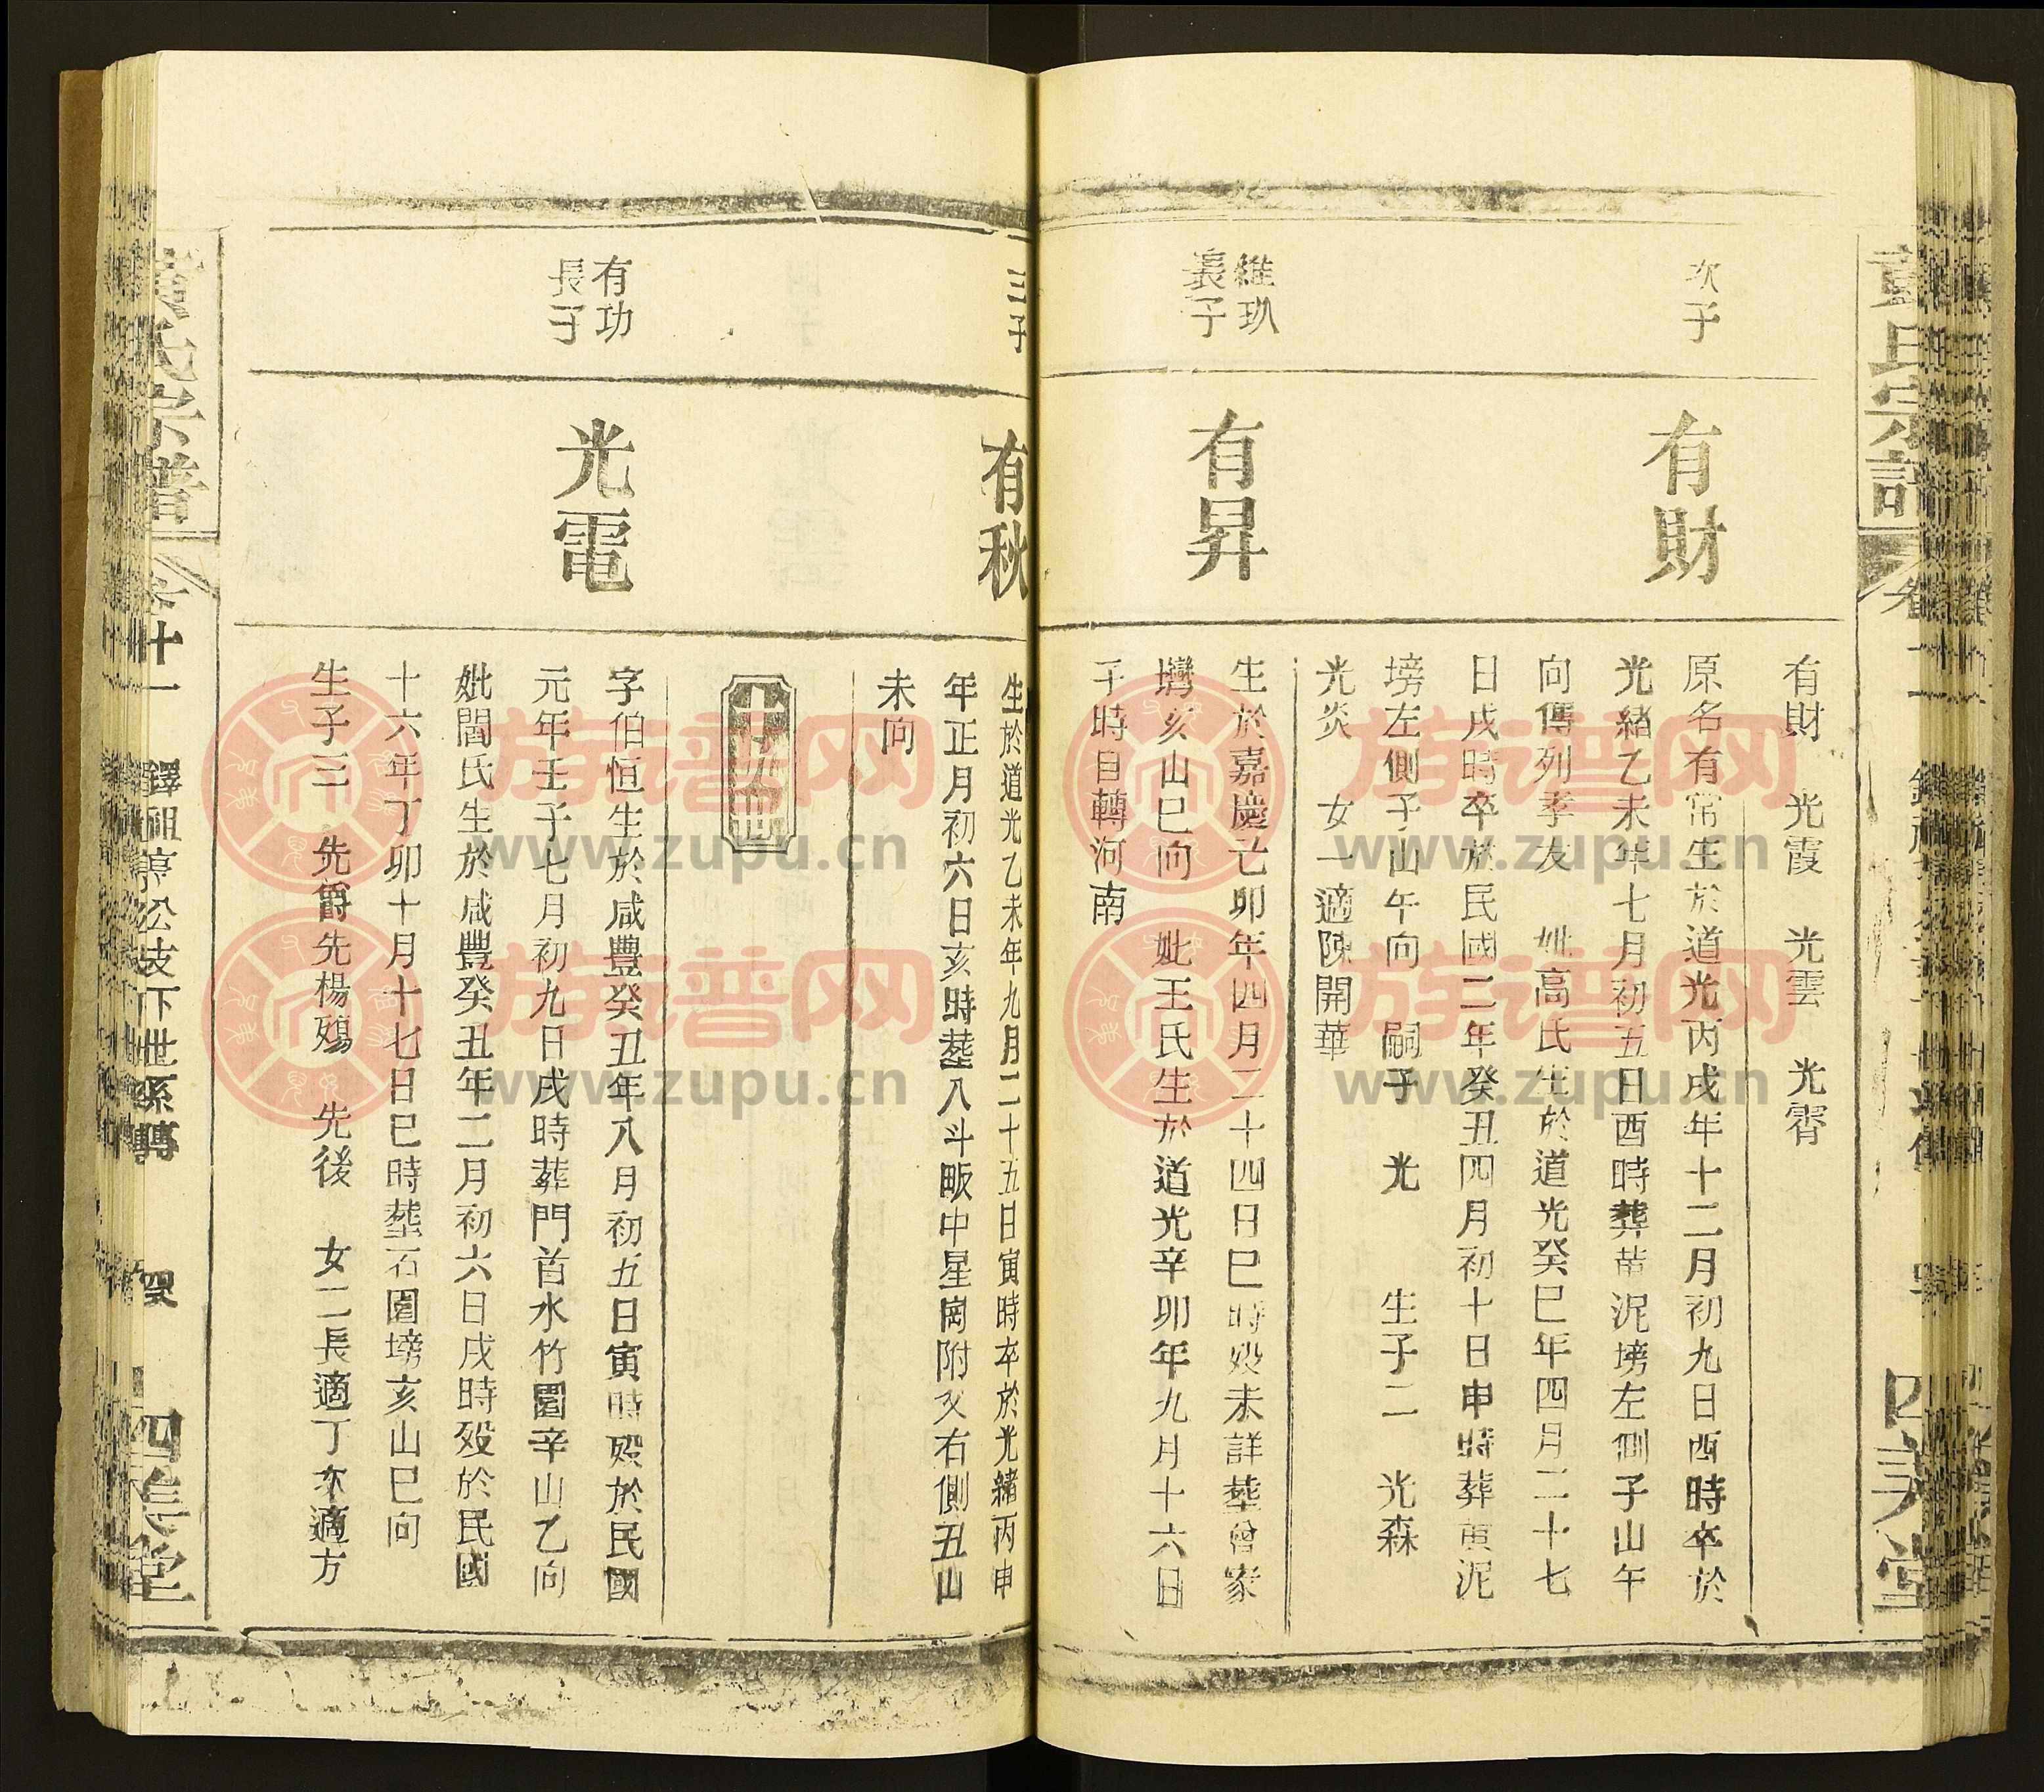 有財　光霞　光雲　光霄
次子
有財
原名有常生於道光丙戌年十二月初九日酉時卒於
光緒乙未年七月初五日酉時葬黄泥塝左側子山午
向傳列孝友　妣高氏生於道光癸巳年四月二十七
日戌時卒於民國二年癸丑四月初十日申時葬黄泥
塝左側子山午向　嗣子　光　生子二　光森
光炎　女一適陳開華
維玐
長子
有昇
生於嘉慶己卯年四月二十四日巳時歿未詳塟曾家
塆亥山巳向　妣王氏生於道光辛卯年九月十六日
子時自轉河南
三子
有秋
生於道光乙未年九月二十五日寅時卒於光緒丙申
年正月初六日亥時塟八斗畈中星崗附父右側丑山
未向
十五世
有功
長子
光電
字伯恒生於咸豐癸丑年八月初五日寅時歿於民國
元年壬子七月初九日戌時葬門首水竹園辛山乙向
妣閻氏生於咸豐癸丑年二月初六日戌時歿於民國
十六年丁卯十月十七日巳時塟石園塝亥山巳向
生子三　先爵先楊殤　先後　女二長適丁次適方
氏宗譜
卷十一
鐸祖淳公支下世系傳
四美堂
族谱网
www.zupu.cn
族谱网
www.zupu.cn
族谱网
www.zupu.cn
族谱网
www.zupu.cn